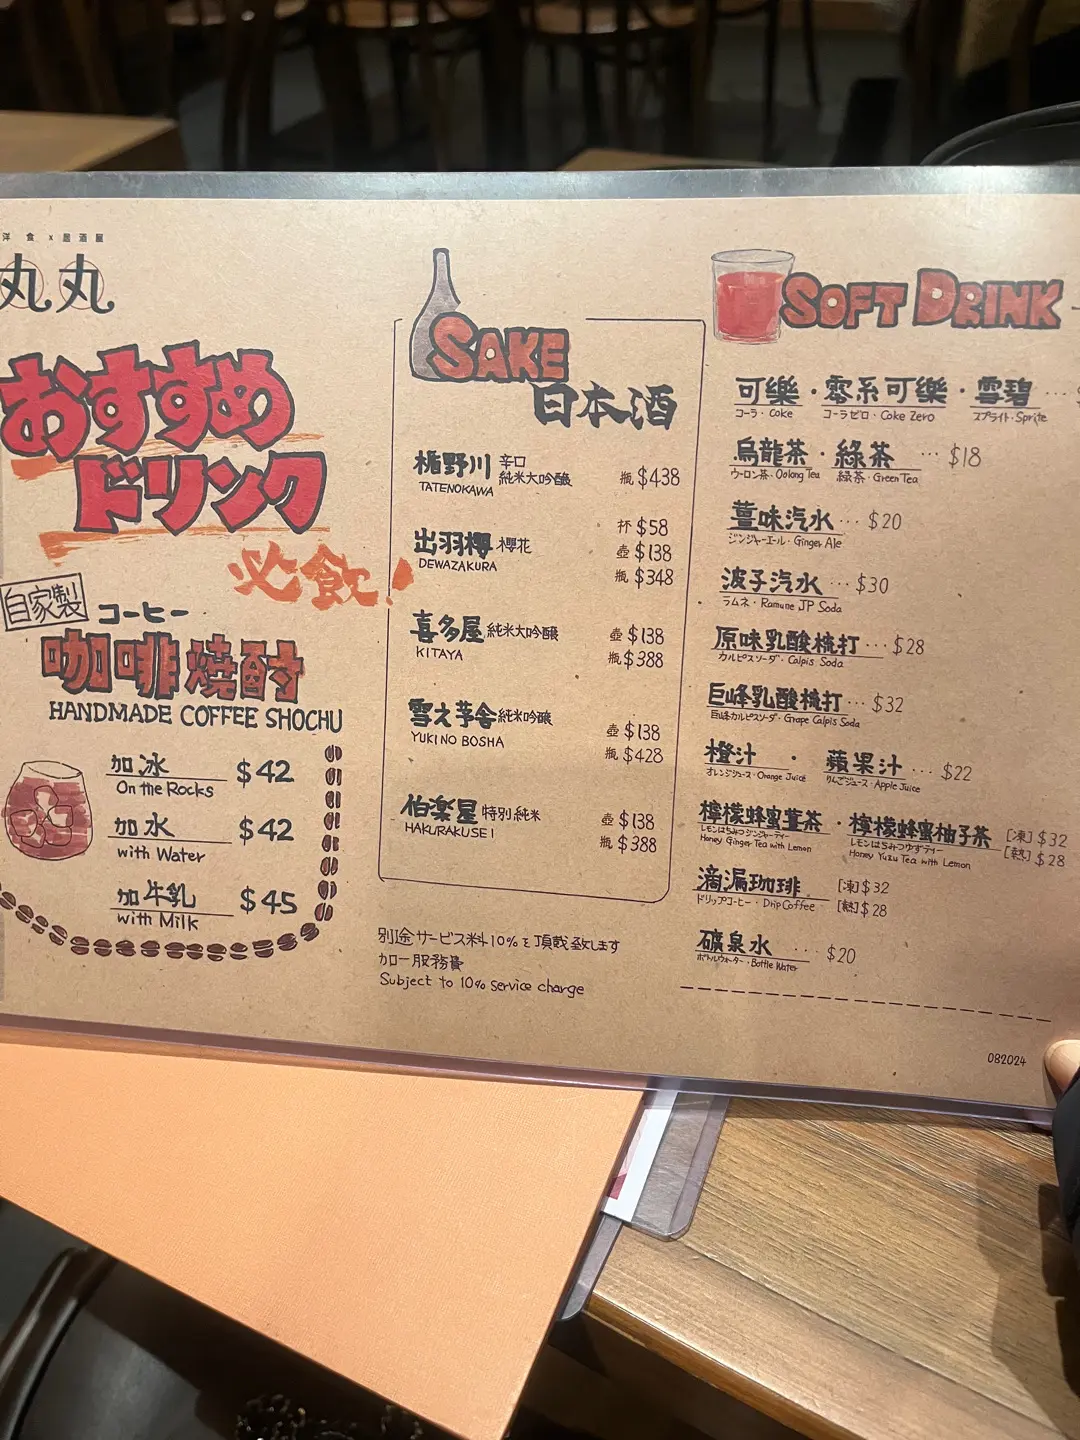 洋食 x 居酒屋
丸丸
おすすめ
ドリンク
必飲!
自家製
コーヒー
咖啡燒酎
HANDMADE COFFEE SHOCHU
加冰 $42
On the Rocks
加水 $42
with Water
加牛乳 $45
with Milk
SAKE
日本酒
楯野川 辛口 純米大吟醸 瓶 $438
TATENOKAWA
出羽櫻 櫻花 杯 $58
DEWAZAKURA 壺 $138
瓶 $348
喜多屋 純米大吟醸 壺 $138
KITAYA 瓶 $388
雪之茅舎 純米吟醸 壺 $138
YUKI NO BOSHA 瓶 $428
伯楽星 特別純米 壺 $138
HAKURAKUSEI 瓶 $388
別途サービス料10%を頂戴致します
加一服務費
Subject to 10% service charge
SOFT DRINK
可樂・零系可樂・雪碧 ...
コーラ・Coke コーラゼロ・Coke Zero スプライト・Sprite
烏龍茶・綠茶 ... $18
ウーロン茶・Oolong Tea 緑茶・Green Tea
薑味汽水 ... $20
ジンジャーエール・Ginger Ale
波子汽水 ... $30
ラムネ・Ramune JP Soda
原味乳酸梳打 ... $28
カルピスソーダ・Calpis Soda
巨峰乳酸梳打 ... $32
巨峰カルピスソーダ・Grape Calpis Soda
橙汁・蘋果汁 ... $22
オレンジジュース・Orange Juice りんごジュース・Apple Juice
檸檬蜂蜜薑茶・檸檬蜂蜜柚子茶 [凍] $32
レモンはちみつジンジャーティー レモンはちみつゆずティー [熱] $28
Honey Ginger Tea with Lemon Honey Yuzu Tea with Lemon
滴漏珈琲 [凍] $32
ドリップコーヒー・Drip Coffee [熱] $28
礦泉水 ... $20
ボトルウォーター・Bottle Water
082024